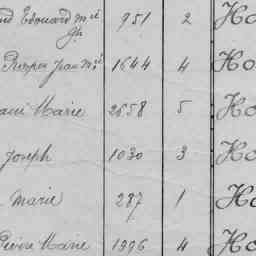 Edouard Mel 951 2 Ho
Gh
Prosper Jean Mel 1644 4 Ho
Marie 2658 5 Ho
Joseph 1030 3 Ho
Marie 287 1 Ho
Pierre Marie 1996 4 Ho